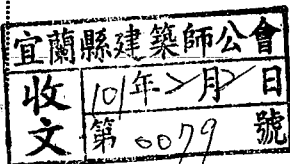 宜蘭縣建築師公會
收文
101年2月2日
第0079號